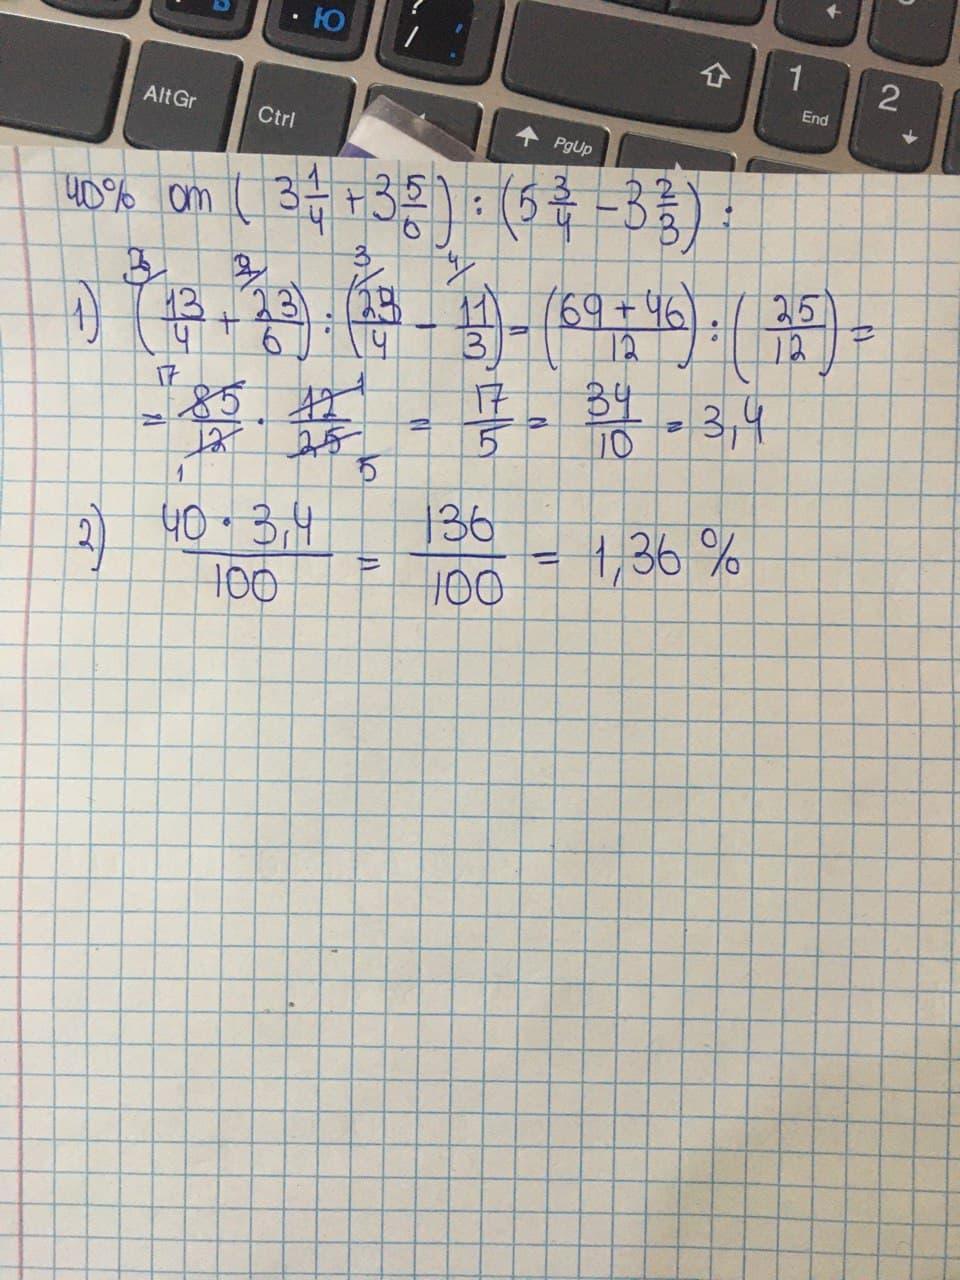 Ю
?
/
AltGr
Ctrl
PgUp
1
End
2
40% от ( 3 1/4 + 3 5/6 ) : ( 5 3/4 − 3 2/3 ) :
1) ( 13/4 + 23/6 ) : ( 29/4 − 11/3 ) = ( 69 + 46 / 12 ) : ( 25/12 ) =
= 85/12 · 12/25 = 17/5 = 34/10 = 3,4
2) 40 · 3,4 / 100 = 136/100 = 1,36 %